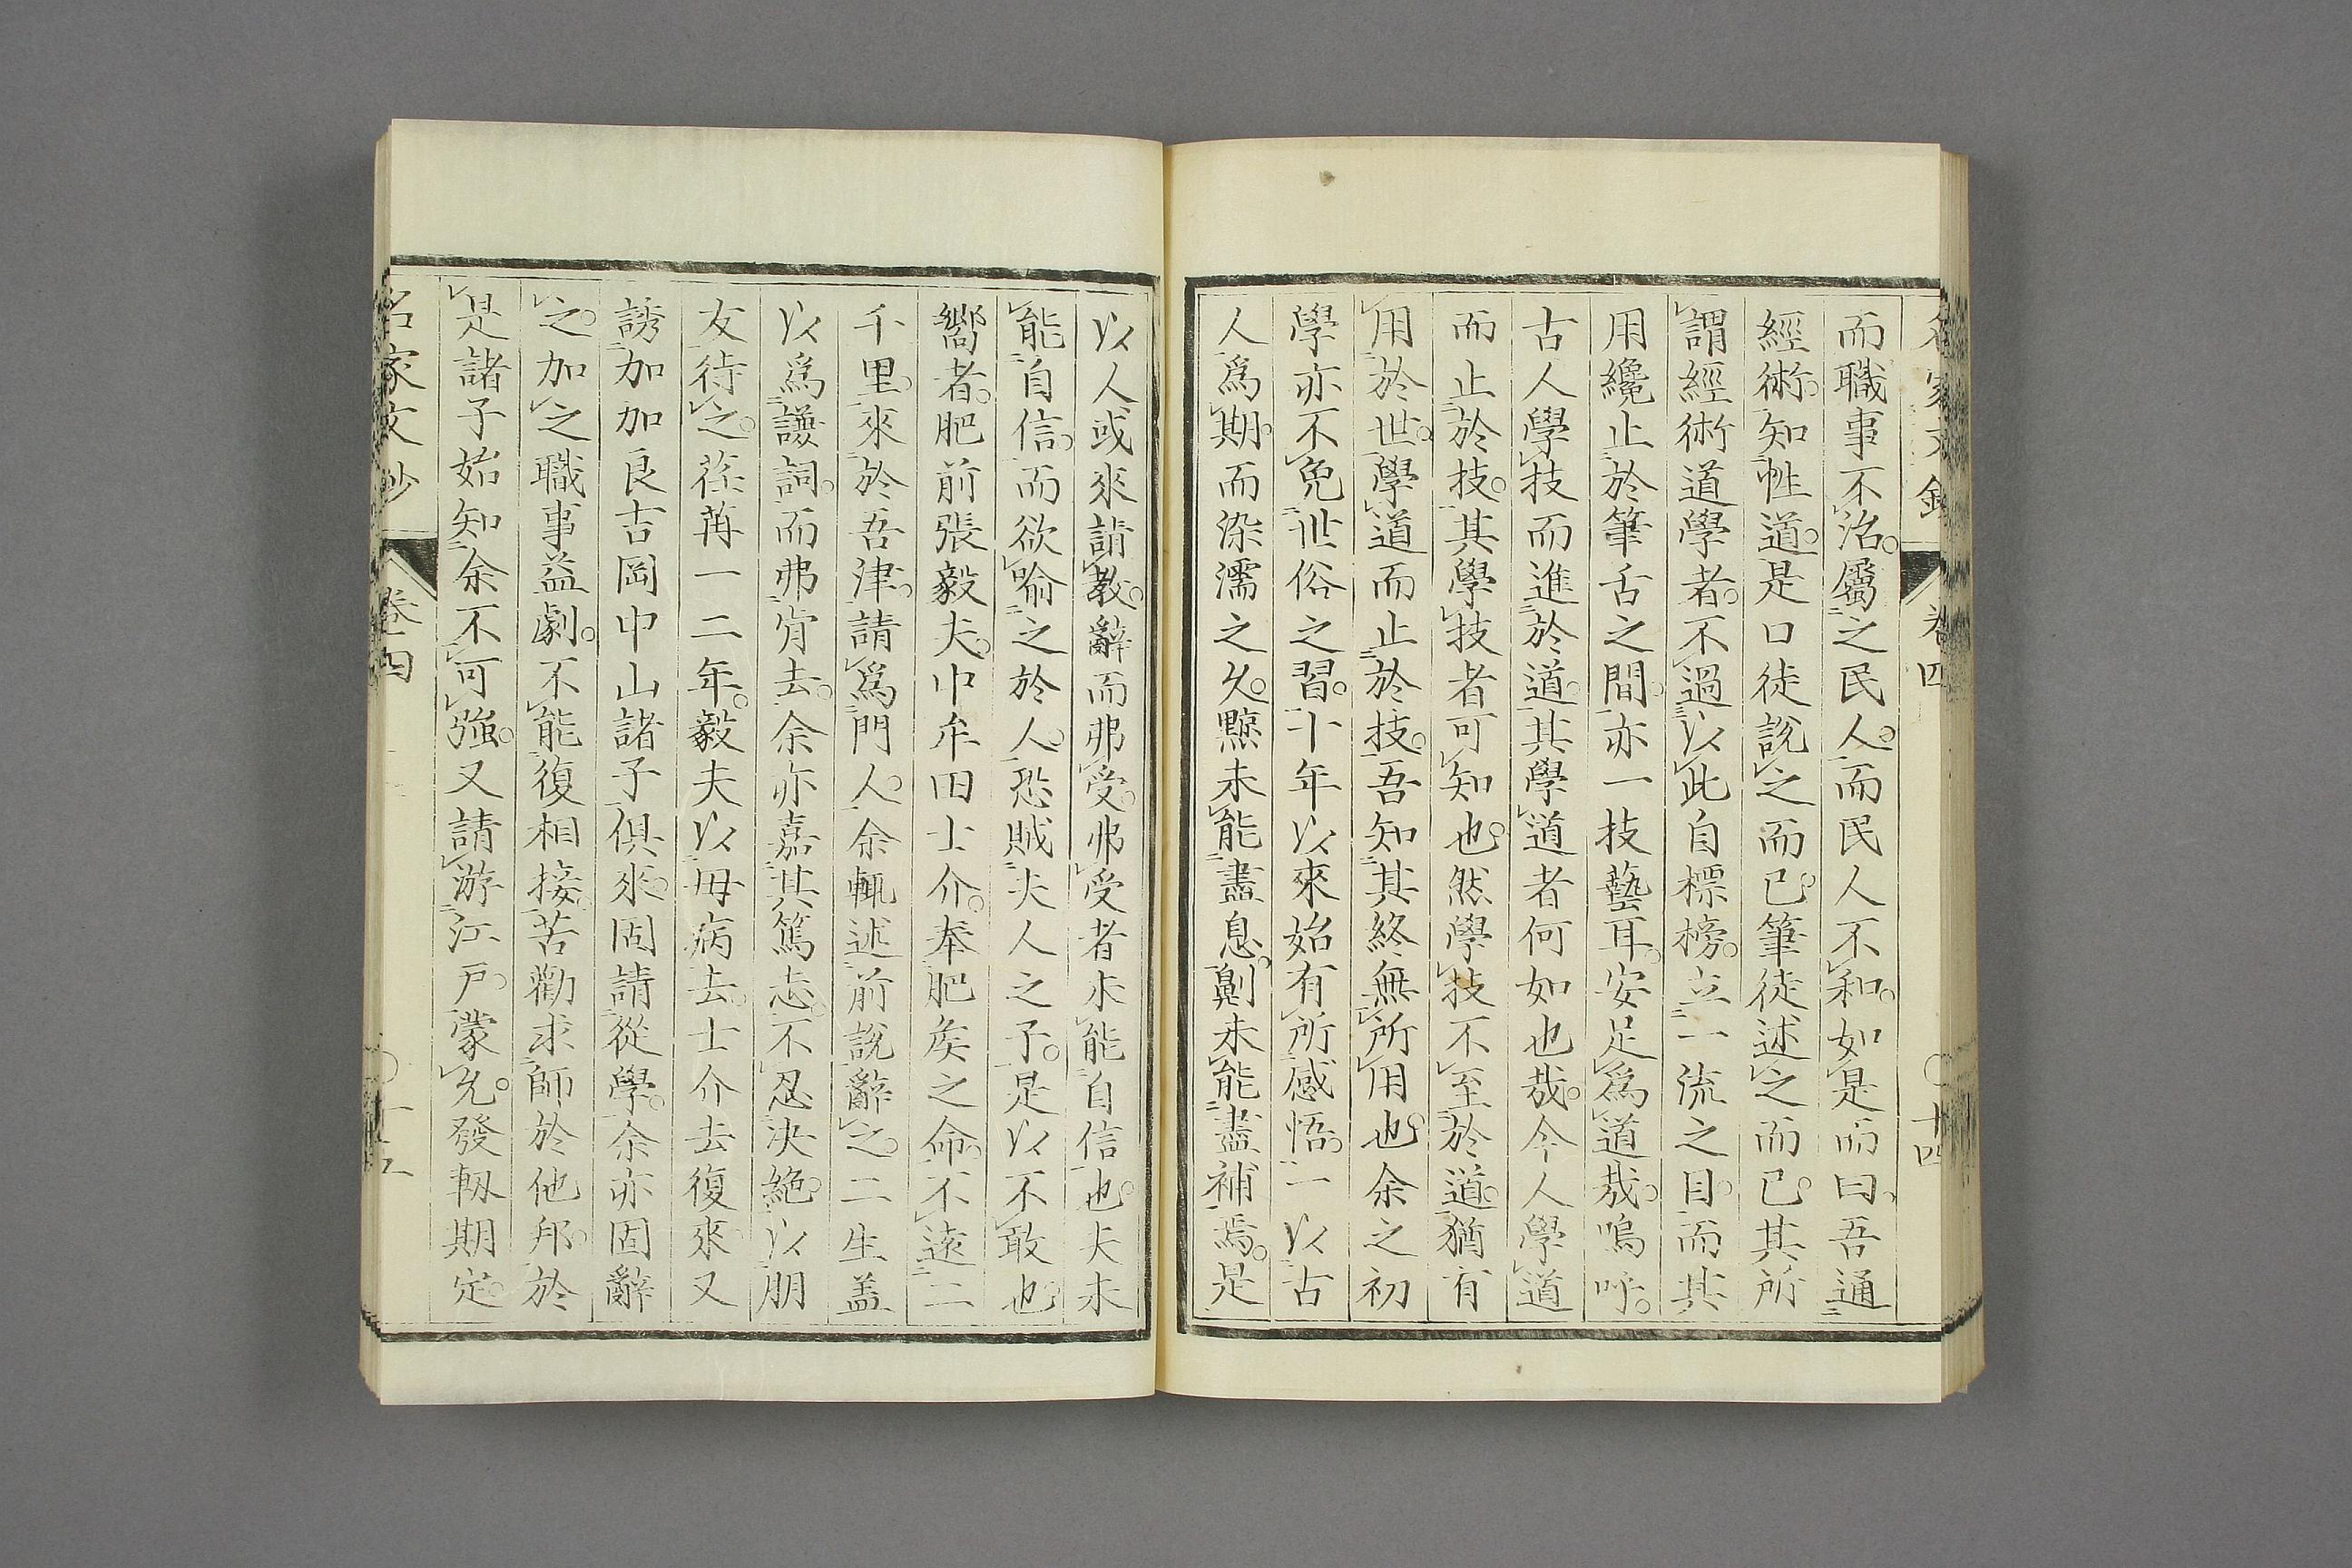 名家文鈔 卷四 〇十四
而職事不治。屬之民人。而民人不和。如是而曰、吾通
經術。知性道。是口徒說之而已。筆徒述之而已。其所
謂經術道學者。不過以此自標榜。立一流之目。而其
用纔止於筆舌之間。亦一技藝耳。安足爲道哉。嗚呼。
古人學技而進於道。其學道者何如也哉。今人學道
而止於技。其學技者可知也。然學技不至於道。猶有
用於世。學道而止於技。吾知其終無所用也。余之初
學亦不免世俗之習。十年以來始有所感悟。一以古
人爲期。而染濡之久。黥未能盡息。劓未能盡補焉。是
以人或來請教。辭而弗受。弗受者未能自信也。夫未
能自信。而欲喻之於人。恐賊夫人之子。是以不敢也。
嚮者。肥前張毅夫。中牟田士介。奉肥矦之命。不遠二
千里。來於吾津。請爲門人。余輒述前說辭之。二生盖
以爲謙詞。而弗肯去。余亦嘉其篤志。不忍決絶。以朋
友待之。荏苒一二年。毅夫以毋病去。士介去復來。又
誘加加良吉岡中山諸子俱來。固請從學。余亦固辭
之。加之職事益劇。不能復相接。苦勸求師於他邦。於
是諸子始知余不可強。又請游江戶。蒙允。發軔期定。
名家文鈔 卷四 〇十五